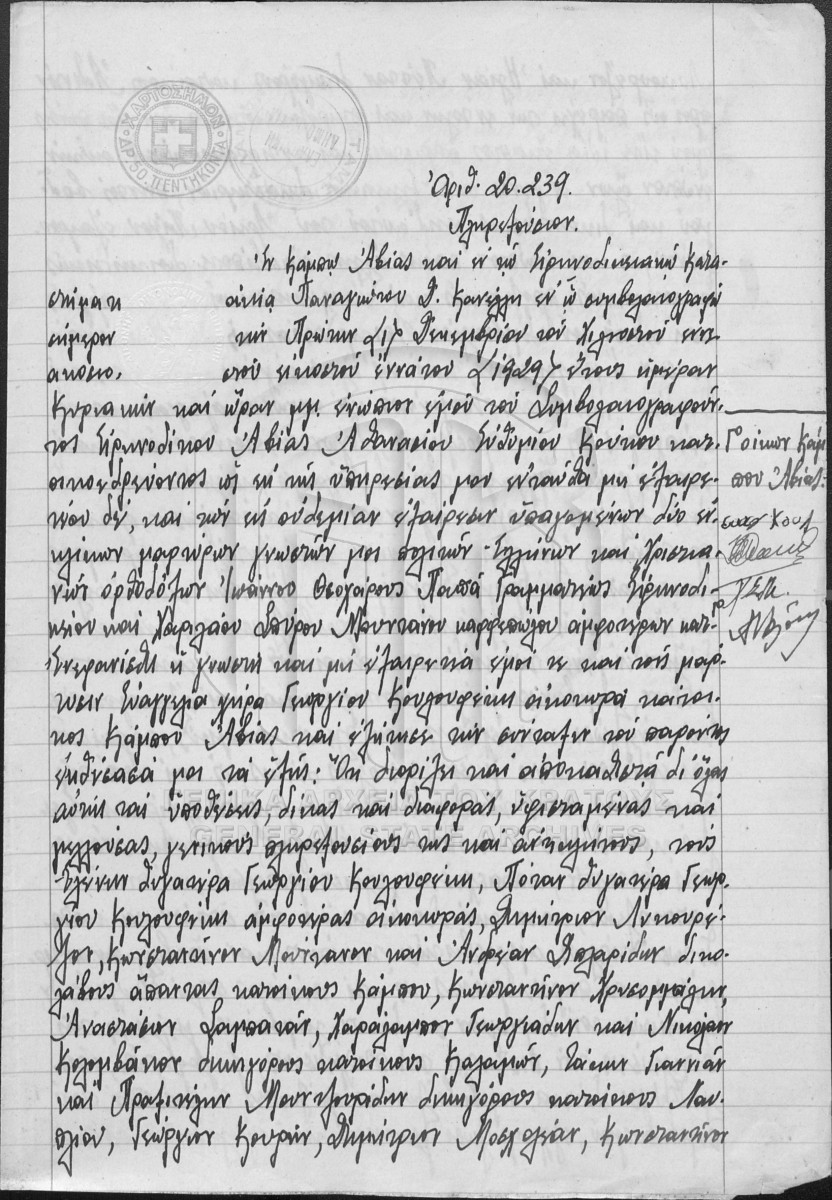 ΧΑΡΤΟΣΗΜΟΝ
ΔΡ. 50. ΠΕΝΤΗΚΟΝΤΑ
Ἀριθ. 20.239.
Πληρεξούσιον.
Ἐν Κάμπῳ Ἀβίας καὶ ἐν τῷ Εἰρηνοδικειακῷ Κατα-
στήματι οἰκίᾳ Παναγιώτου Κανέλλη ἐν ᾧ συμβολαιογραφῶ
σήμερον τὴν Πρώτην (1) Δεκεμβρίου τοῦ χιλιοστοῦ ἐννα-
κοσιο. στοῦ εἰκοστοῦ ἐννάτου (1929) ἔτους ἡμέραν
Κυριακὴν καὶ ὥραν μμ ἐνώπιον ἐμοῦ τοῦ Συμβολαιογραφοῦν-
τος Εἰρηνοδίκου Ἀβίας Ἀθανασίου Εὐθυμίου Κούκου κατ-
οικοεδρεύοντος ὡς ἐκ τῆς ὑπηρεσίας μου ἐνταῦθα μὴ ἐξαιρε-
τέου δέ, καὶ τῶν εἰς οὐδεμίαν ἐξαίρεσιν ὑπαγομένων δύο ἐν-
ηλίκων μαρτύρων γνωστῶν μοι πολιτῶν Ἑλλήνων καὶ Χριστια-
νῶν ὀρθοδόξων Ἰωάννου Θεοχάρους Παπᾶ Γραμματέως Εἰρηνοδι-
κείου καὶ Χαριλάου Σπύρου Μουντάνου καφφεπώλου ἀμφοτέρων κατ
Ἐνεφανίσθη ἡ γνωστὴ καὶ μὴ ἐξαιρετέα ἐμοί τε καὶ τοῖς μάρ-
τυσιν Εὐαγγελία χήρα Γεωργίου Κουλουφέκη οἰκοκυρὰ κάτοι-
κος Κάμπου Ἀβίας καὶ ἐζήτησε τὴν σύνταξιν τοῦ παρόντος
ἐκθέσασά μοι τὰ ἑξῆς: Ὅτι διορίζει καὶ ἀποκαθιστᾷ δι' ὅλας
αὐτῆς τὰς ὑποθέσεις, δίκας καὶ διαφοράς, ὑφισταμένας καὶ
μελλούσας, γενικοὺς πληρεξουσίους της καὶ ἀντικλήτους, τοὺς
Ἑλένην θυγατέρα Γεωργίου Κουλουφέκη, Πόταν θυγατέρα Γεωρ-
γίου Κουλουφέκη ἀμφοτέρας οἰκοκυράς, Δημήτριον Λυκουρέ-
ζον, Κωνσταντῖνον Μουντάνον καὶ Ἀνδρέαν δικο-
λάβους ἅπαντας κατοίκους Κάμπου, Κωνσταντῖνον Χρυσομάλλην,
Ἀναστάσιον Σαμπατάν, Χαράλαμπον Γεωργιάδην καὶ Νικόλαον
Κολομβάκον δικηγόρους κατοίκους Καλαμῶν, Τάκην Γιαννιᾶν
καὶ Πραξιτέλην Μουτζουρίδην δικηγόρους κατοίκους Ναυ-
πλίου, Γεώργιον Κουρήν, Δημήτριον Μοσχολέαν, Κωνσταντῖνον
Γοίκων Κάμ
που Ἀβίας
ΓΕΝΙΚΑ ΑΡΧΕΙΑ ΤΟΥ ΚΡΑΤΟΥΣ
GENERAL STATE ARCHIVES